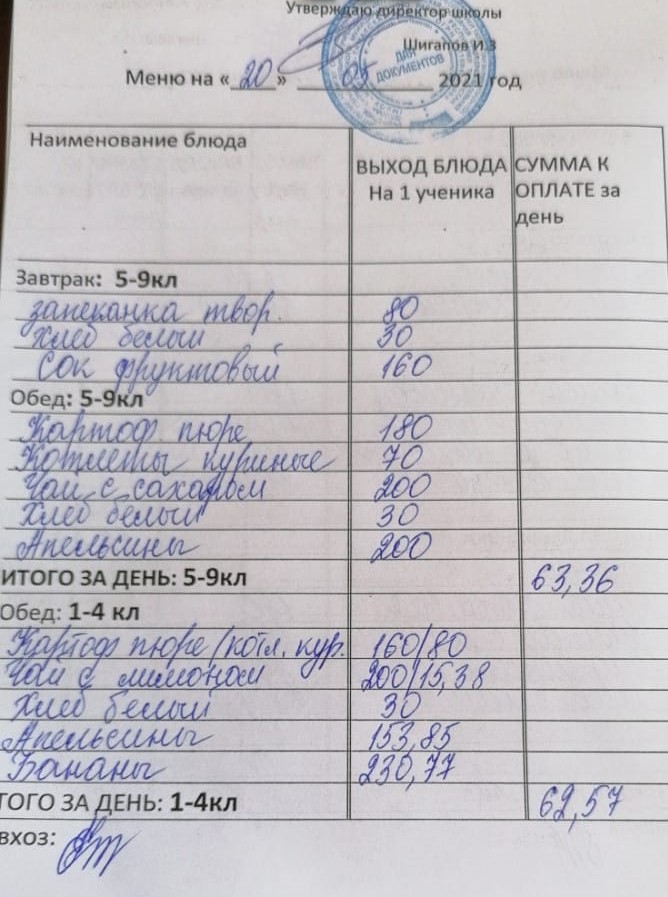 Утверждаю директор школы
Шигапов И.З
ДЛЯ ДОКУМЕНТОВ
Меню на «20» 05 2021 год
Наименование блюда ВЫХОД БЛЮДА На 1 ученика СУММА К ОПЛАТЕ за день
Завтрак: 5-9кл
запеканка твор. 80
Хлеб белый 30
Сок фруктовый 160
Обед: 5-9кл
Картоф. пюре 180
Котлеты куриные 70
Чай с сахаром 200
Хлеб белый 30
Апельсины 200
ИТОГО ЗА ДЕНЬ: 5-9кл 63,36
Обед: 1-4 кл
Картоф пюре/котл. кур. 160/80
Чай с лимоном 200/15,38
Хлеб белый 30
Апельсины 153,85
Бананы 230,77
ТОГО ЗА ДЕНЬ: 1-4кл 62,57
вхоз: